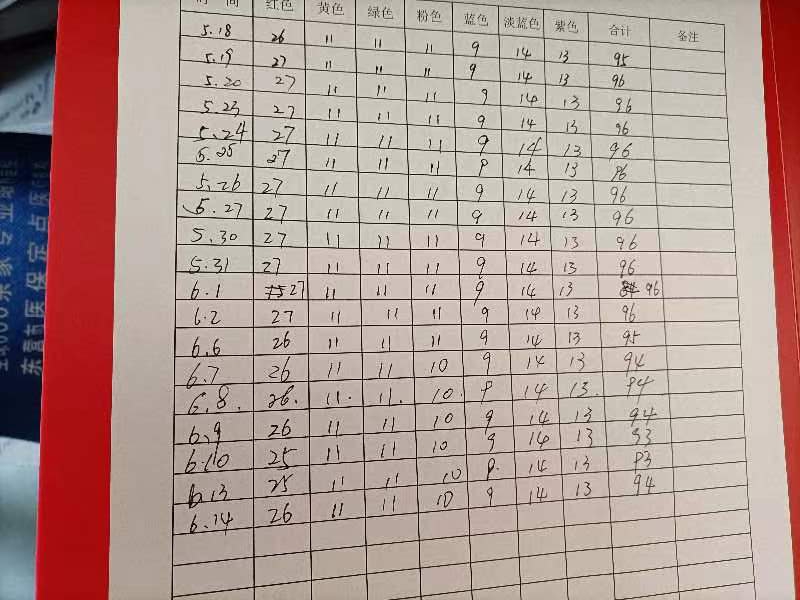 时 间 红色 黄色 绿色 粉色 蓝色 淡蓝色 紫色 合计 备注
5.18 26 11 11 11 9 14 13 95
5.19 27 11 11 11 9 14 13 96
5.20 27 11 11 11 9 14 13 96
5.23 27 11 11 11 9 14 13 96
5.24 27 11 11 11 9 14 13 96
5.25 27 11 11 11 9 14 13 96
5.26 27 11 11 11 9 14 13 96
5.27 27 11 11 11 9 14 13 96
5.30 27 11 11 11 9 14 13 96
5.31 27 11 11 11 9 14 13 96
6.1 27 11 11 11 9 14 13 96
6.2 27 11 11 11 9 14 13 96
6.6 26 11 11 11 9 14 13 95
6.7 26 11 11 10 9 14 13 94
6.8. 26. 11. 11. 10. 9 14 13. 94
6.9 26 11 11 10 9 14 13 94
6.10 25 11 11 10 9 14 13 93
6.13 25 11 11 10 9. 14 13 93
6.14 26 11 11 10 9 14 13 94
东营市医保定点医